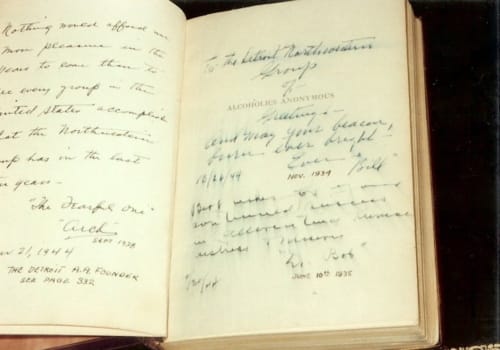 Nothing would afford me
more pleasure in the
years to come than to
see every group in the
United States accomplish
what the Northwestern
has in the last
years—
"The Fearful One"
"Arch"
SEPT 1938
21, 1944
THE DETROIT A.A. FOUNDER
SEE PAGE 332
To the Detroit Northwestern
Group
of
ALCOHOLICS ANONYMOUS
Greetings—
and may your beacon,
burn ever bright—
Ever "Bill"
10/26/44 NOV. 1934
Best wishes for
continued success
in
"Dr. Bob"
JUNE 10TH 1935